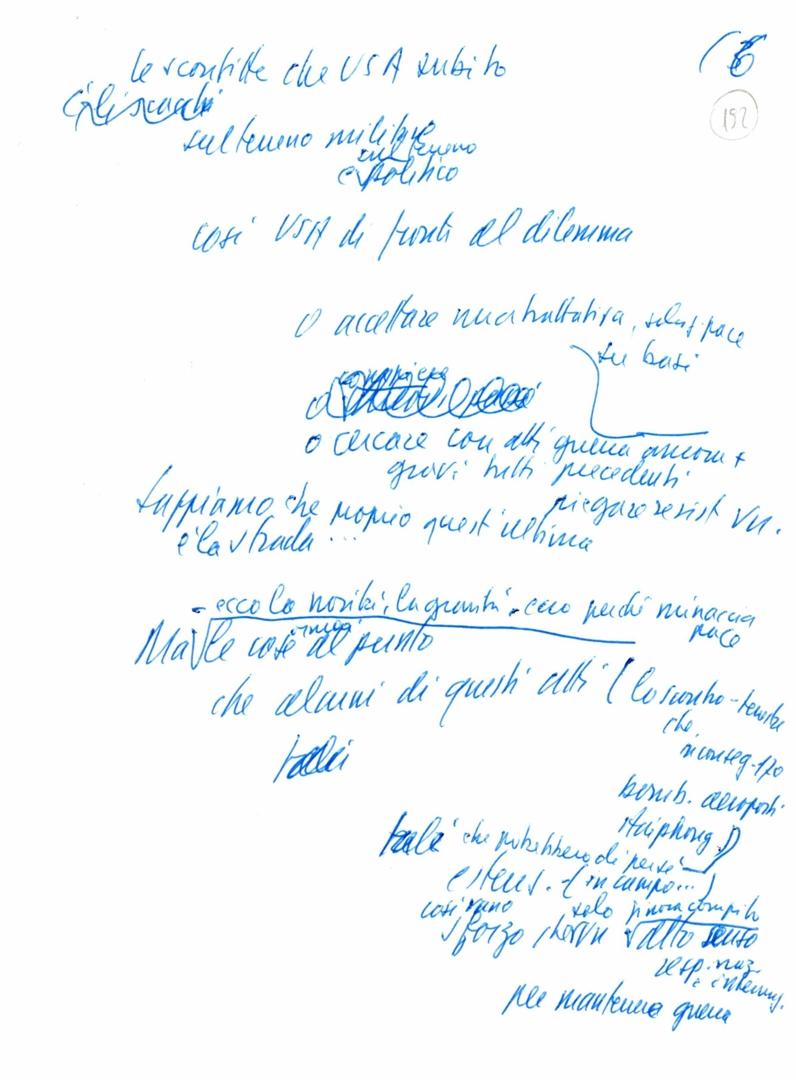 (6
192
le sconfitte che USA subito
Gli scacchi
sul terreno militare
sul terreno
e politico
così USA di fronte al dilemma
o accettare una trattativa, soluz pace
su basi
compiere
o
o cercare con atti guerra ancora +
gravi tutti precedenti
piegare resist VN.
Sappiamo che proprio quest'ultima
è la strada ...
- ecco la novità, la gravità - ecco perché minaccia
pace
Ma le cose ormai al punto
che alcuni di questi atti (lo scontro - terrestre
che
in conseg. 170
tali
bomb. aeroporti
Haiphong)
tali che potrebbero di per sé
estens. - (in campo...)
così sono solo finora compiuto
sforzo atto senso
resp. naz.
e internaz.
per mantenere guerra